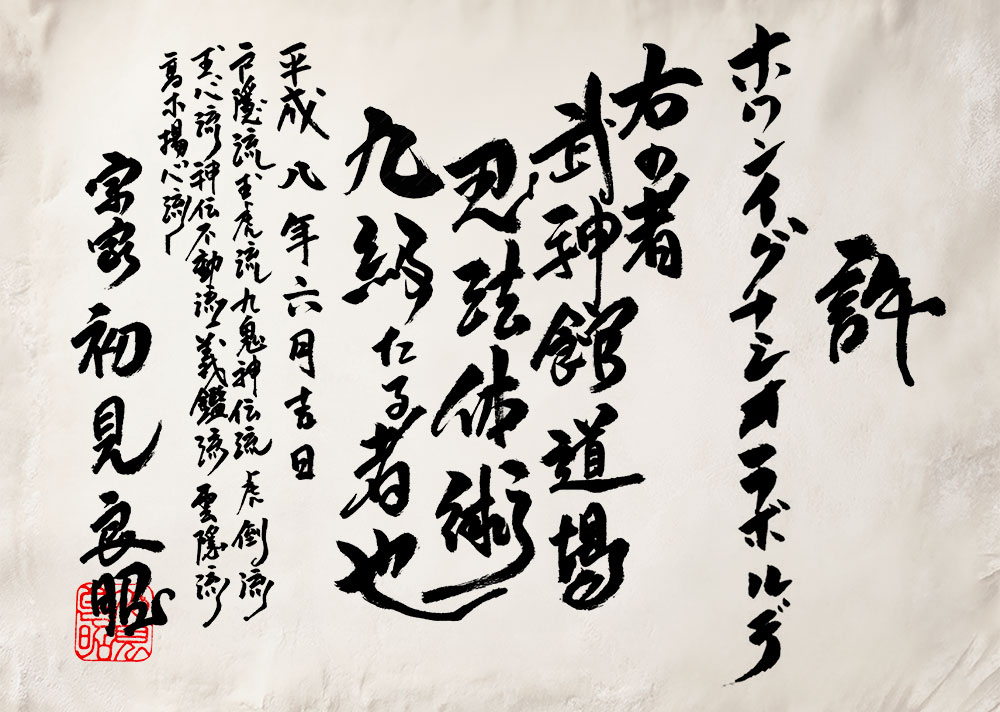 許
ホワンイグナシオラボルデ
右の者
武神館道場
忍法体術
九級たる者也
平成八年六月吉日
戸隠流玉虎流九鬼神伝流虎倒流
玉心流神伝不動流義鑑流雲隠流
高木揚心流
宗家初見良昭